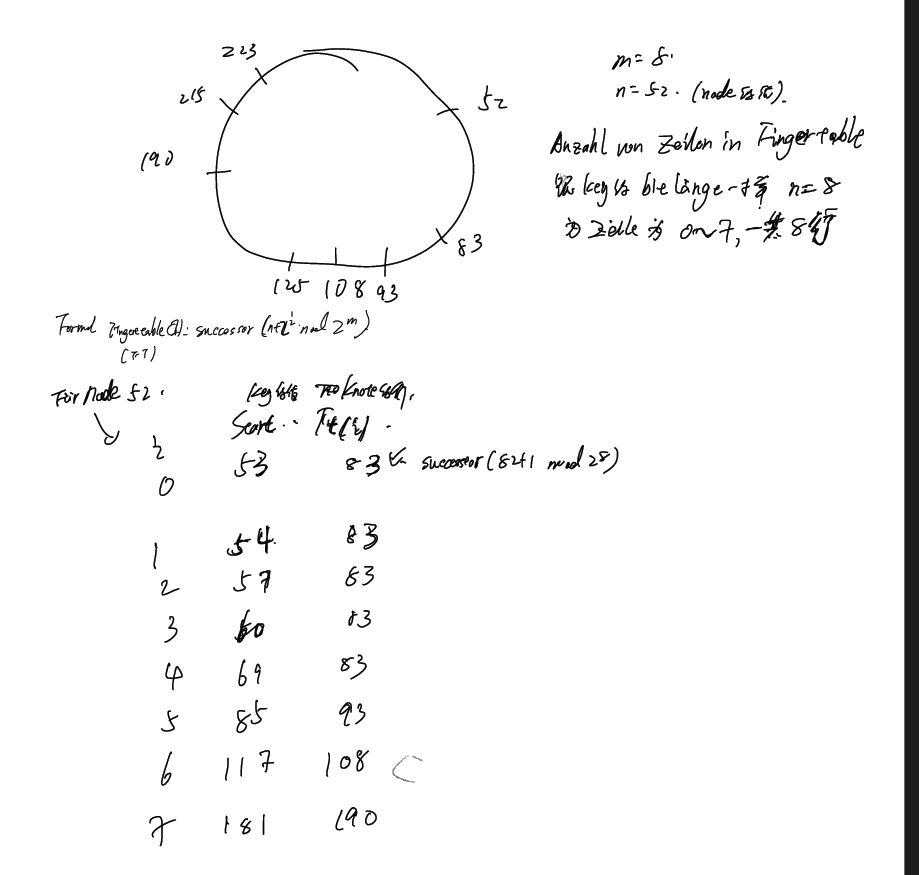 223
215
190
52
83
125 108 93
m= 8.
n= 52. (node
Anzahl von Zeilen in Fingertable
key länge 一样 n=8
为 Zeile 为 0~7, 一共 8行
Formel Fingertable successor (n+2^i mod 2^m)
Für Node 52.
key
Start
0 53 83 ← successor (82+1 mod 28)
1 54 83
2 57 83
3 60 83
4 69 83
5 85 93
6 117 108
7 181 190